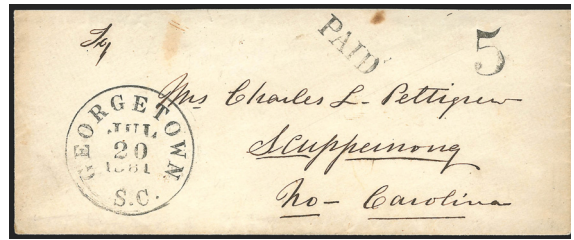 PAID
5
Mrs Charles L. Pettigrew
Scuppernong
No- Carolina
GEORGETOWN
JUL
20
1861
S.C.